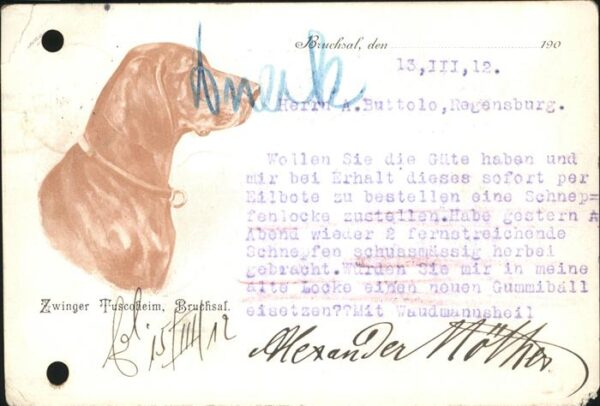 Bruchsal, den 190
13,III,12.
Herrn A.Buttolo, Regensburg.
Wollen Sie die Güte haben und
mir bei Erhalt dieses sofort per
Eilbote zu bestellen eine Schnep=
fenlocke zustellen.Habe gestern A
Abend wieder 2 fernstreichende
Schnepfen schussmässig herbei
gebracht.Würden Sie mir in meine
alte Locke einen neuen Gummiball
eisetzen??Mit Waudmannsheil
Zwinger Tuscoheim, Bruchsal.
15/III 12
Alexander